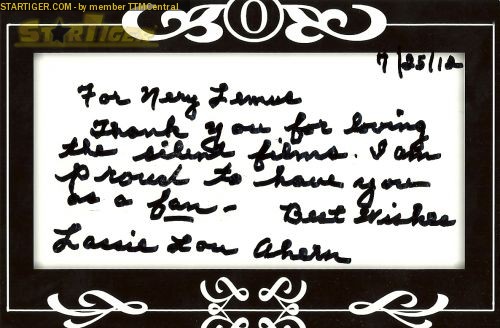 STARTIGER.COM - by member TTMCentral
STARTIGER
7/25/12
For Nery Lemus
Thank you for loving
the silent films. I am
proud to have you
as a fan - Best Wishes
Lassie Lou Ahern